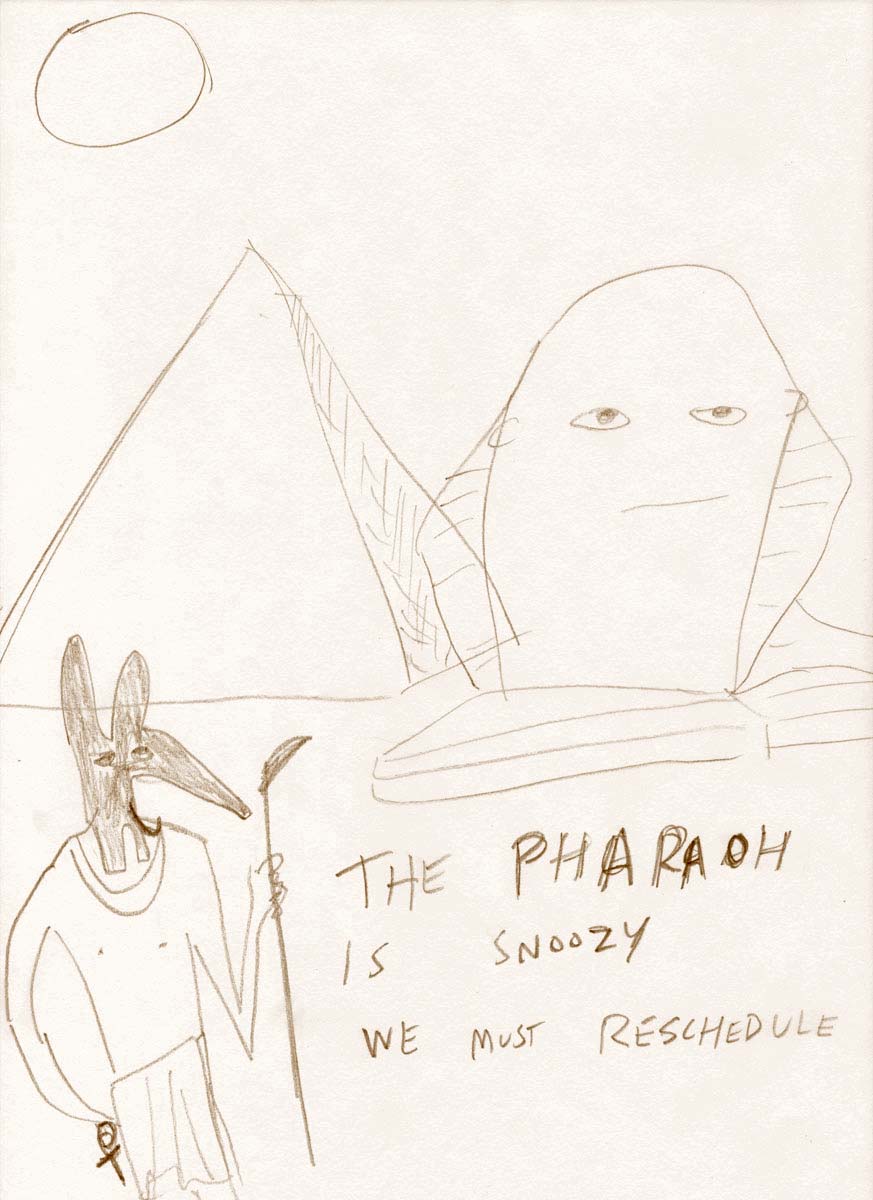 THE PHARAOH
IS SNOOZY
WE MUST RESCHEDULE